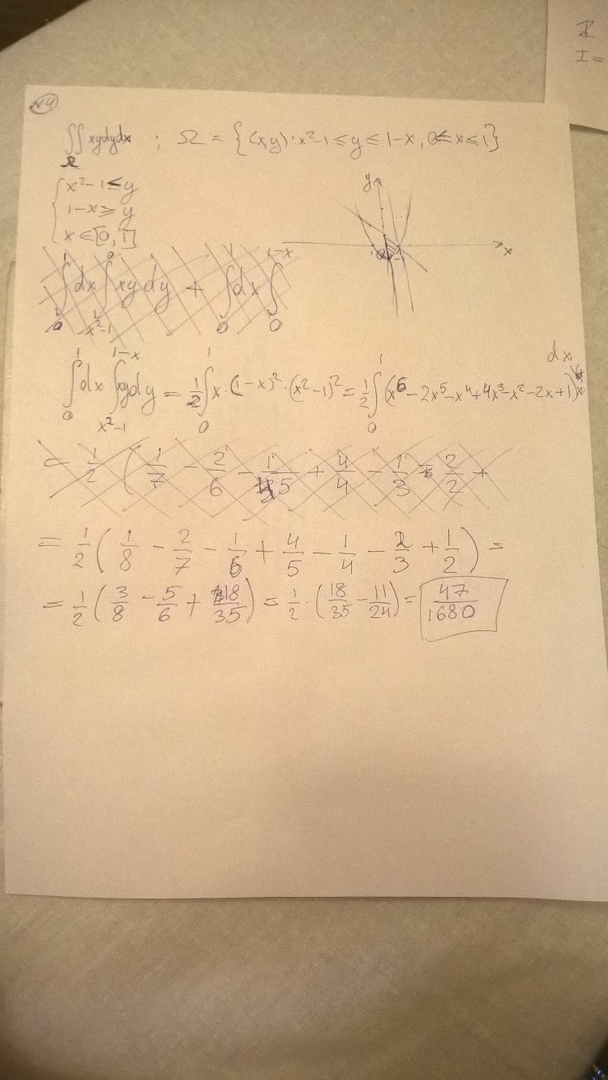 №4
∬_Ω xydydx ; Ω = {(x,y): x²-1 ≤ y ≤ 1-x, 0 ≤ x ≤ 1}
{ x²-1 ≤ y
1-x ≥ y
x ∈ [0, 1]
y
x
∫₀¹ dx ∫_{x²-1}^0 xy dy + ∫₀¹ dx ∫₀^{1-x}
∫₀¹ dx ∫_{x²-1}^{1-x} xydy = 1/2 ∫₀¹ x·(1-x)²·(x²-1)² = 1/2 ∫₀¹ (x⁶-2x⁵-x⁴+4x³-x²-2x+1)x dx
= 1/2 ( 1/7 - 2/6 - 1/5 + 4/4 - 1/3 - 2/2 +
= 1/2 ( 1/8 - 2/7 - 1/6 + 4/5 - 1/4 - 2/3 + 1/2 ) =
= 1/2 ( 3/8 - 5/6 + 18/35 ) = 1/2 · ( 18/35 - 11/24 ) = 47/1680
I =